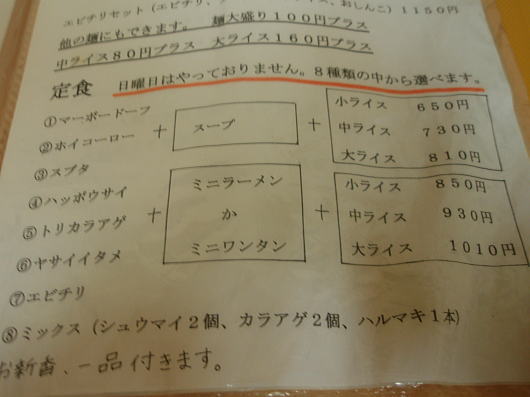 エビチリセット（エビチリ、
イス、おしんこ）１１５０円
他の麺にもできます。　麺大盛り１００円プラス
中ライス８０円プラス　大ライス１６０円プラス
定食　日曜日はやっておりません。８種類の中から選べます。
①マーボードーフ
②ホイコーロー
③スブタ
④ハッポウサイ
⑤トリカラアゲ
⑥ヤサイイタメ
⑦エビチリ
⑧ミックス（シュウマイ２個、カラアゲ２個、ハルマキ１本）
＋
スープ
＋
小ライス　６５０円
中ライス　７３０円
大ライス　８１０円
＋
ミニラーメン
か
ミニワンタン
＋
小ライス　８５０円
中ライス　９３０円
大ライス　１０１０円
お新香、一品付きます。